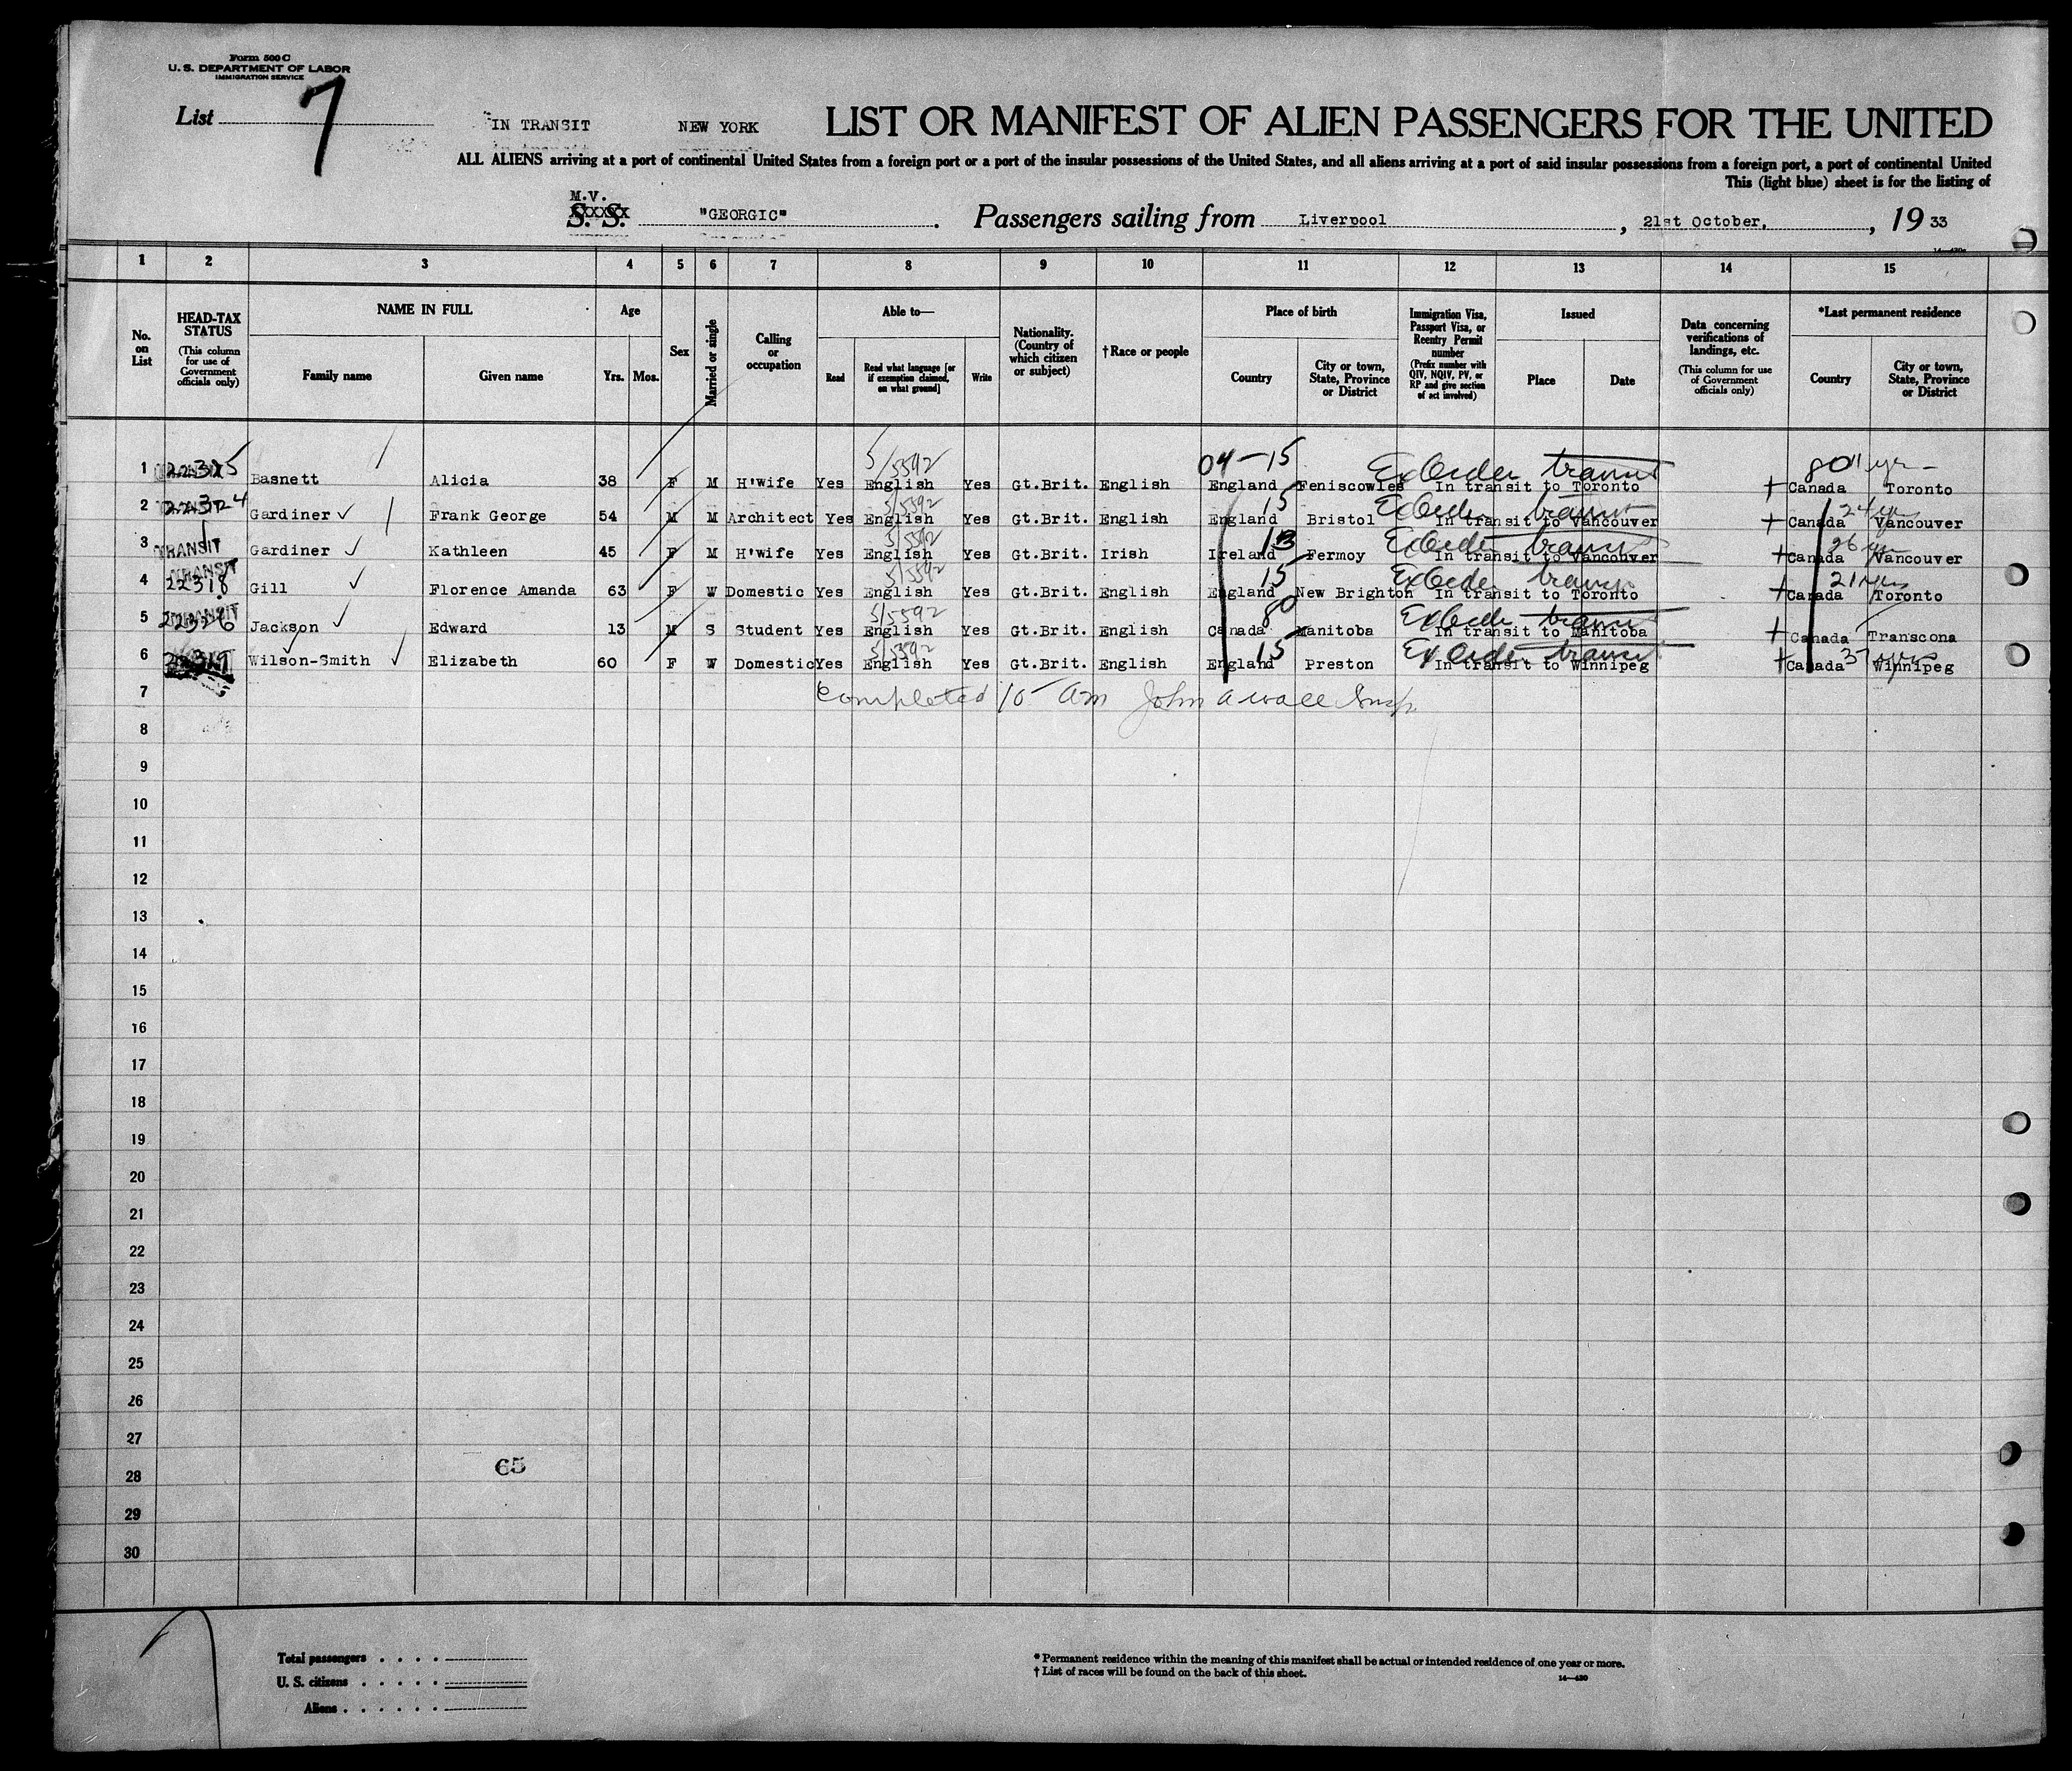 Form 500 C
U. S. DEPARTMENT OF LABOR
IMMIGRATION SERVICE
List 7
IN TRANSIT NEW YORK
LIST OR MANIFEST OF ALIEN PASSENGERS FOR THE UNITED
ALL ALIENS arriving at a port of continental United States from a foreign port or a port of the insular possessions of the United States, and all aliens arriving at a port of said insular possessions from a foreign port, a port of continental United
This (light blue) sheet is for the listing of
M.V.
S. S. "GEORGIC". Passengers sailing from Liverpool, 21st October, 1933
1 2 3 4 5 6 7 8 9 10 11 12 13 14 15
No. on List
HEAD-TAX STATUS (This column for use of Government officials only)
NAME IN FULL
Family name
Given name
Age
Yrs. Mos.
Sex
Married or single
Calling or occupation
Able to—
Read
Read what language [or if exemption claimed, on what ground]
Write
Nationality. (Country of which citizen or subject)
†Race or people
Place of birth
Country
City or town, State, Province or District
Immigration Visa, Passport Visa, or Reentry Permit number (Prefix number with QIV, NQIV, PV, or RP and give section of act involved)
Issued
Place
Date
Data concerning verifications of landings, etc. (This column for use of Government officials only)
*Last permanent residence
Country
City or town, State, Province or District
5/5592 04-15 transit
1 Basnett Alicia 38 F M H'wife Yes English Yes Gt.Brit. English England Feniscowles In transit to Toronto Canada Toronto
5/5592 15 transit 24 yrs
2 Gardiner Frank George 54 M M Architect Yes English Yes Gt.Brit. English England Bristol In transit to Vancouver Canada Vancouver
5/5592 13 transit 26 yrs
3 TRANSIT Gardiner Kathleen 45 F M H'wife Yes English Yes Gt.Brit. Irish Ireland Fermoy In transit to Vancouver Canada Vancouver
TRANSIT 5/5592 15 transit 21 yrs
4 22318 Gill Florence Amanda 63 F W Domestic Yes English Yes Gt.Brit. English England New Brighton In transit to Toronto Canada Toronto
TRANSIT 5/5592 80 transit
5 Jackson Edward 13 M S Student Yes English Yes Gt.Brit. English Canada Manitoba In transit to Manitoba Canada Transcona
5/5592 15 transit
6 Wilson-Smith Elizabeth 60 F W Domestic Yes English Yes Gt.Brit. English England Preston In transit to Winnipeg Canada Winnipeg
7 Completed 10 am John A Wall Insp.
8
9
10
11
12
13
14
15
16
17
18
19
20
21
22
23
24
25
26
27
65
28
29
30
Total passengers
U. S. citizens
Aliens
* Permanent residence within the meaning of this manifest shall be actual or intended residence of one year or more.
† List of races will be found on the back of this sheet.
14—430